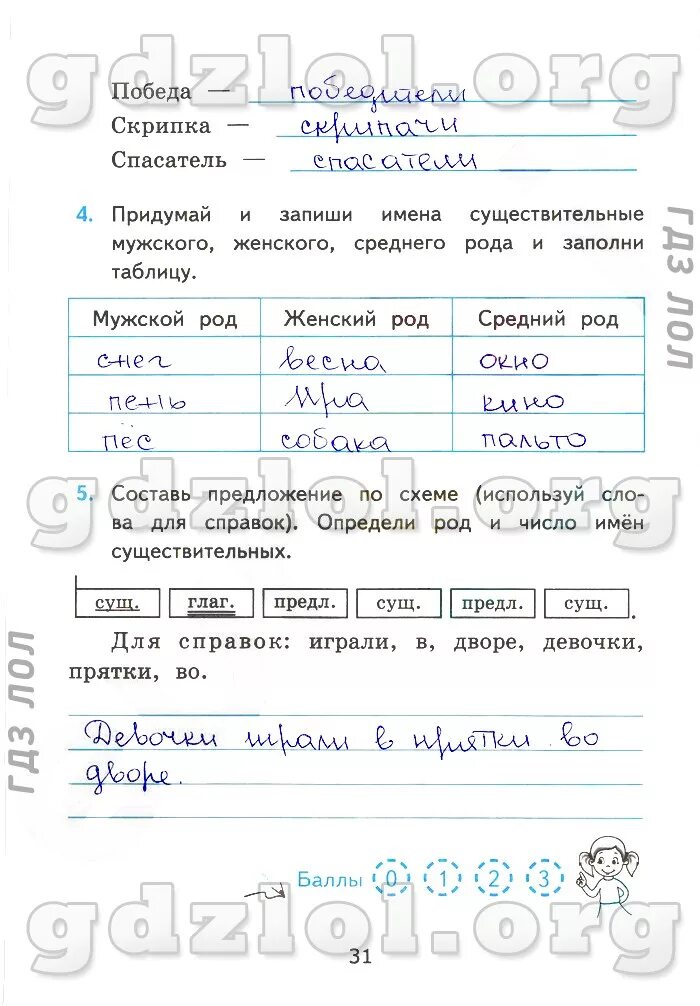 gdzlol.org
Победа — победители
Скрипка — скрипачи
Спасатель — спасатели
4. Придумай и запиши имена существительные
мужского, женского, среднего рода и заполни
таблицу.
ГДЗ ЛОЛ
Мужской род Женский род Средний род
снег весна окно
пень Ира кино
пёс собака пальто
gdzlol.org
5. Составь предложение по схеме (используй сло-
ва для справок). Определи род и число имён
существительных.
сущ. глаг. предл. сущ. предл. сущ. .
Для справок: играли, в, дворе, девочки,
прятки, во.
ГДЗ ЛОЛ
Девочки играли в прятки во
дворе.
Баллы 0 1 2 3
gdzlol.org
31